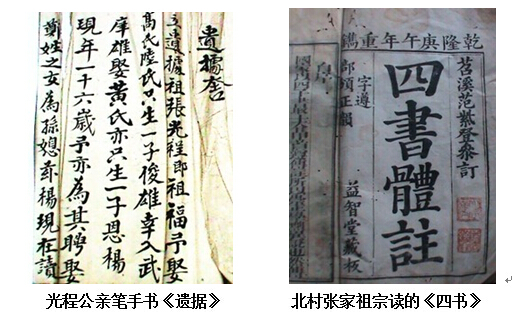 遺據舍
立遺據祖張光程即祖福予娶
高氏陸氏只生一子俊雄幸入武
庠雄娶黃氏亦只生一子恩楊
現年一十六歲予亦為其聘娶
鄭姓之女為孫媳茲楊現在讀
乾隆庚午年重鐫
苕溪范紫登參訂
四書體註
字遵
部頒正韻
益智堂藏板
光程公亲笔手书《遗据》
北村张家祖宗读的《四书》